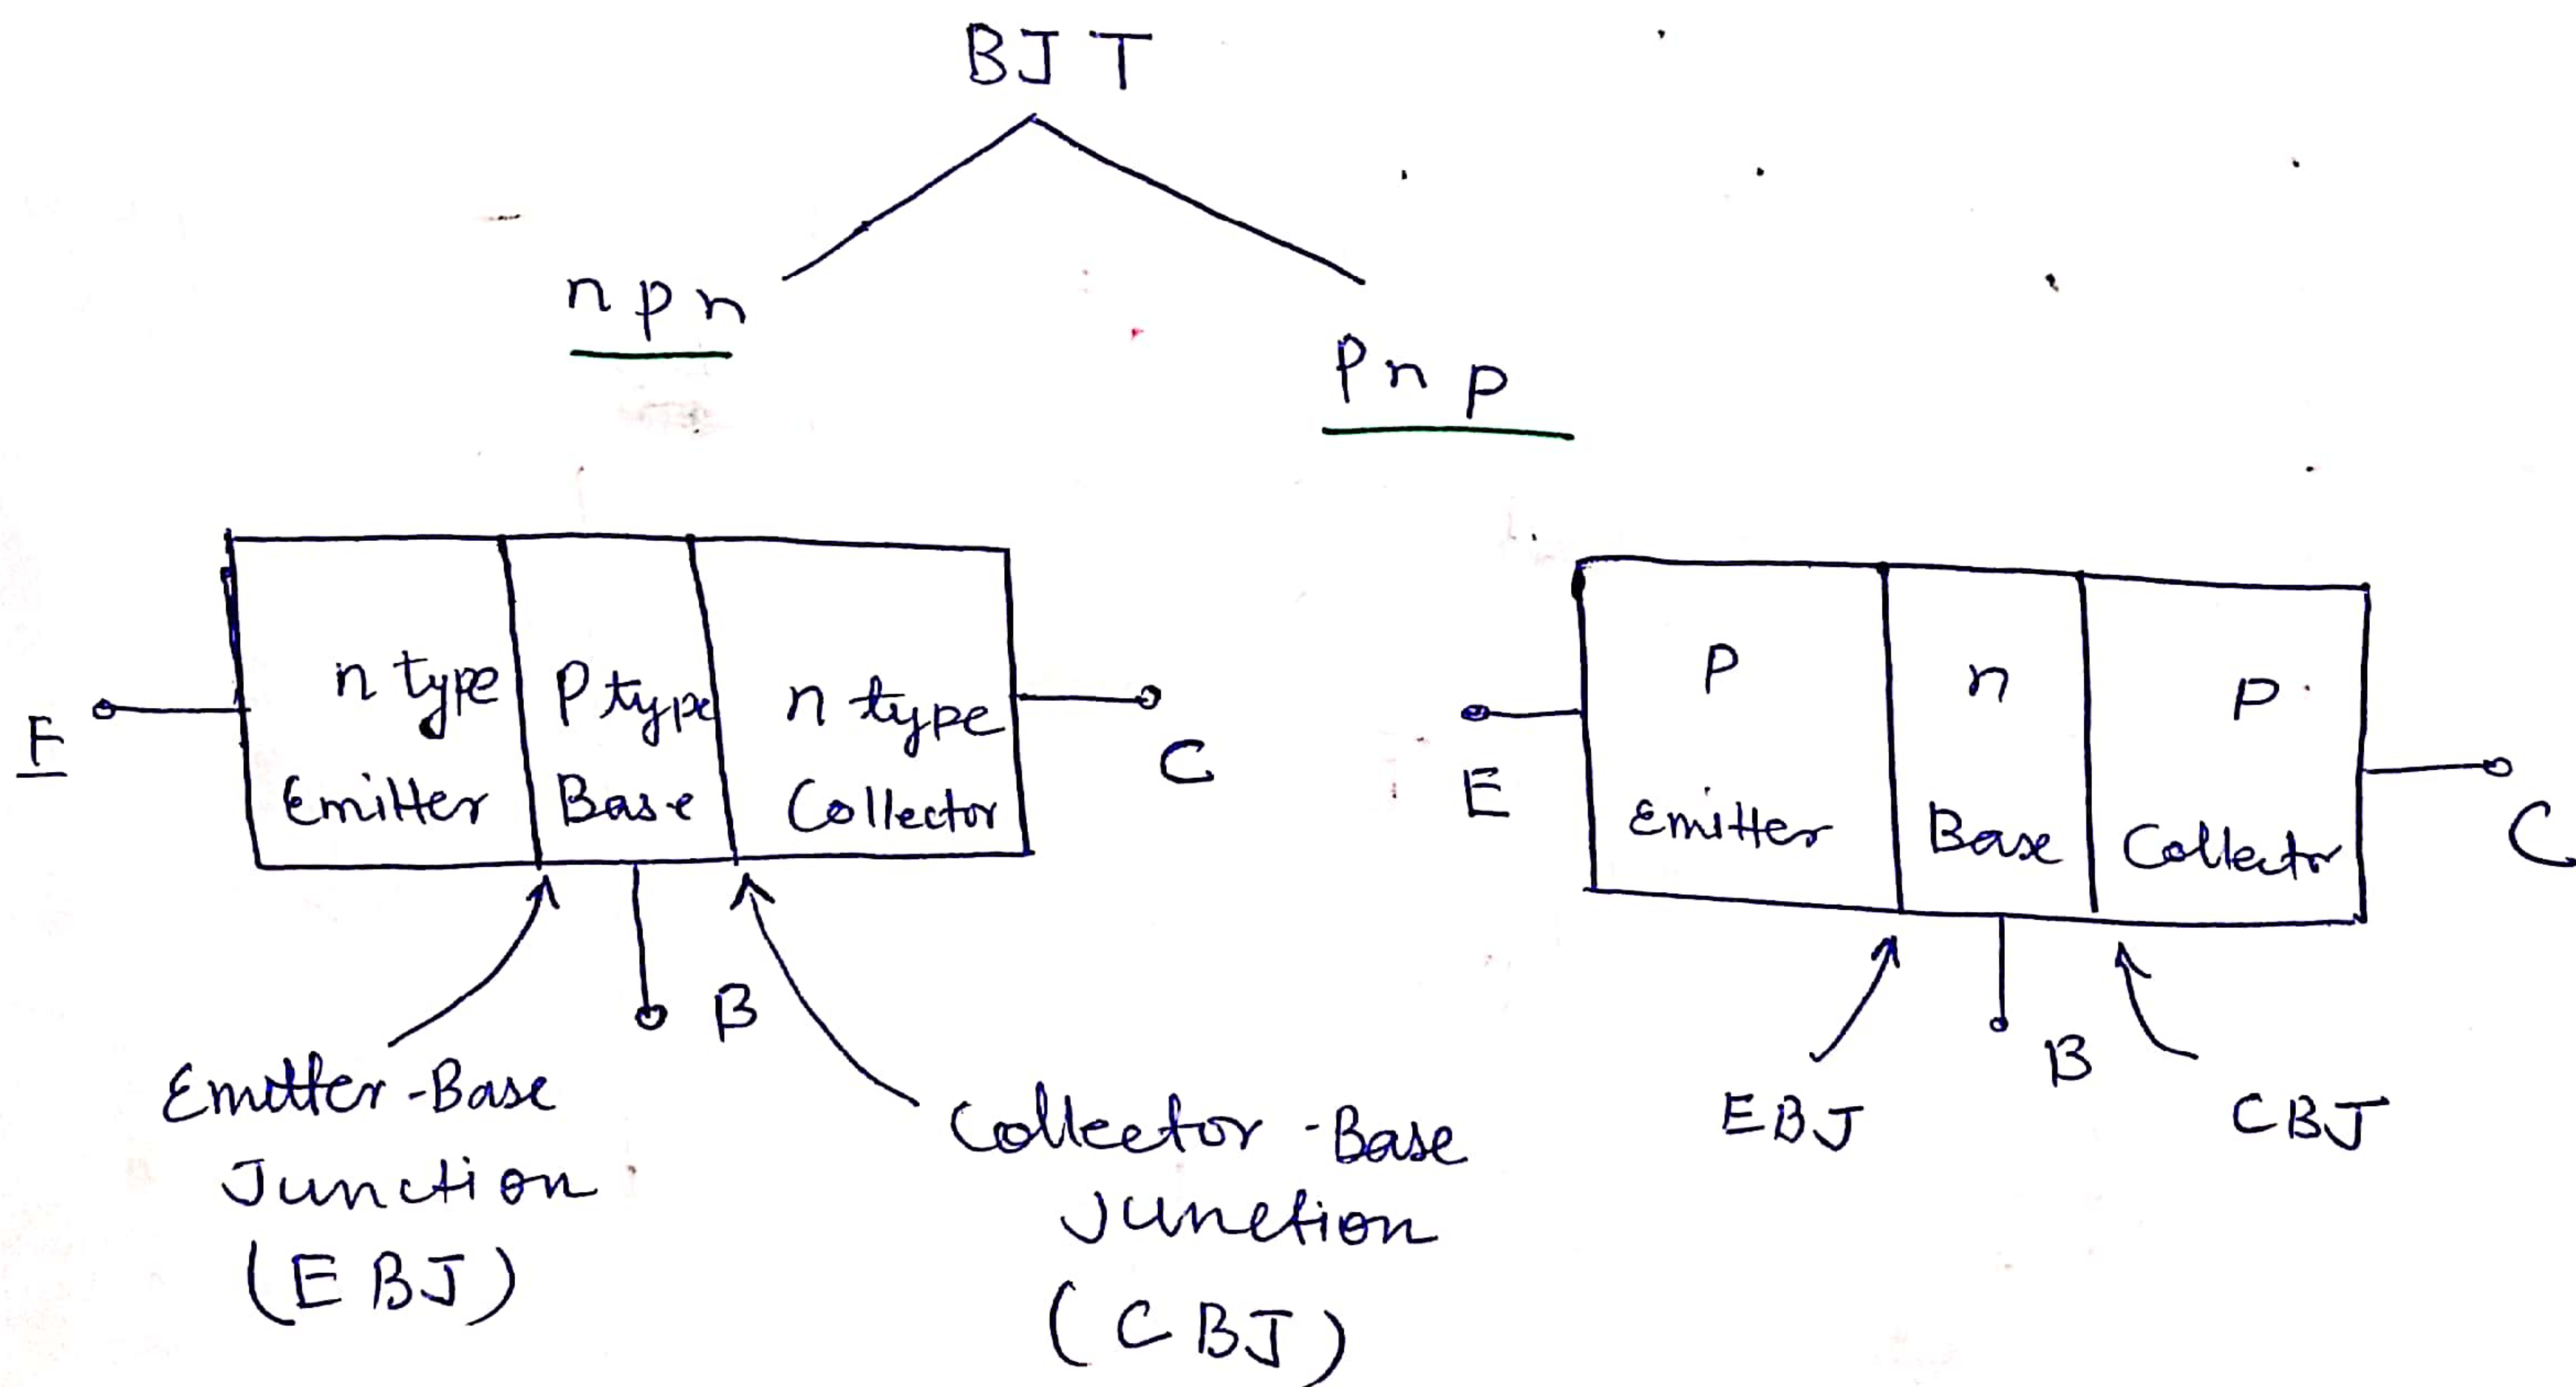 BJT
npn
pnp
n type
Emitter
P type
Base
n type
Collector
E
C
B
Emitter-Base
Junction
(EBJ)
Collector-Base
Junction
(CBJ)
P
Emitter
n
Base
P
Collector
E
C
B
EBJ
CBJ